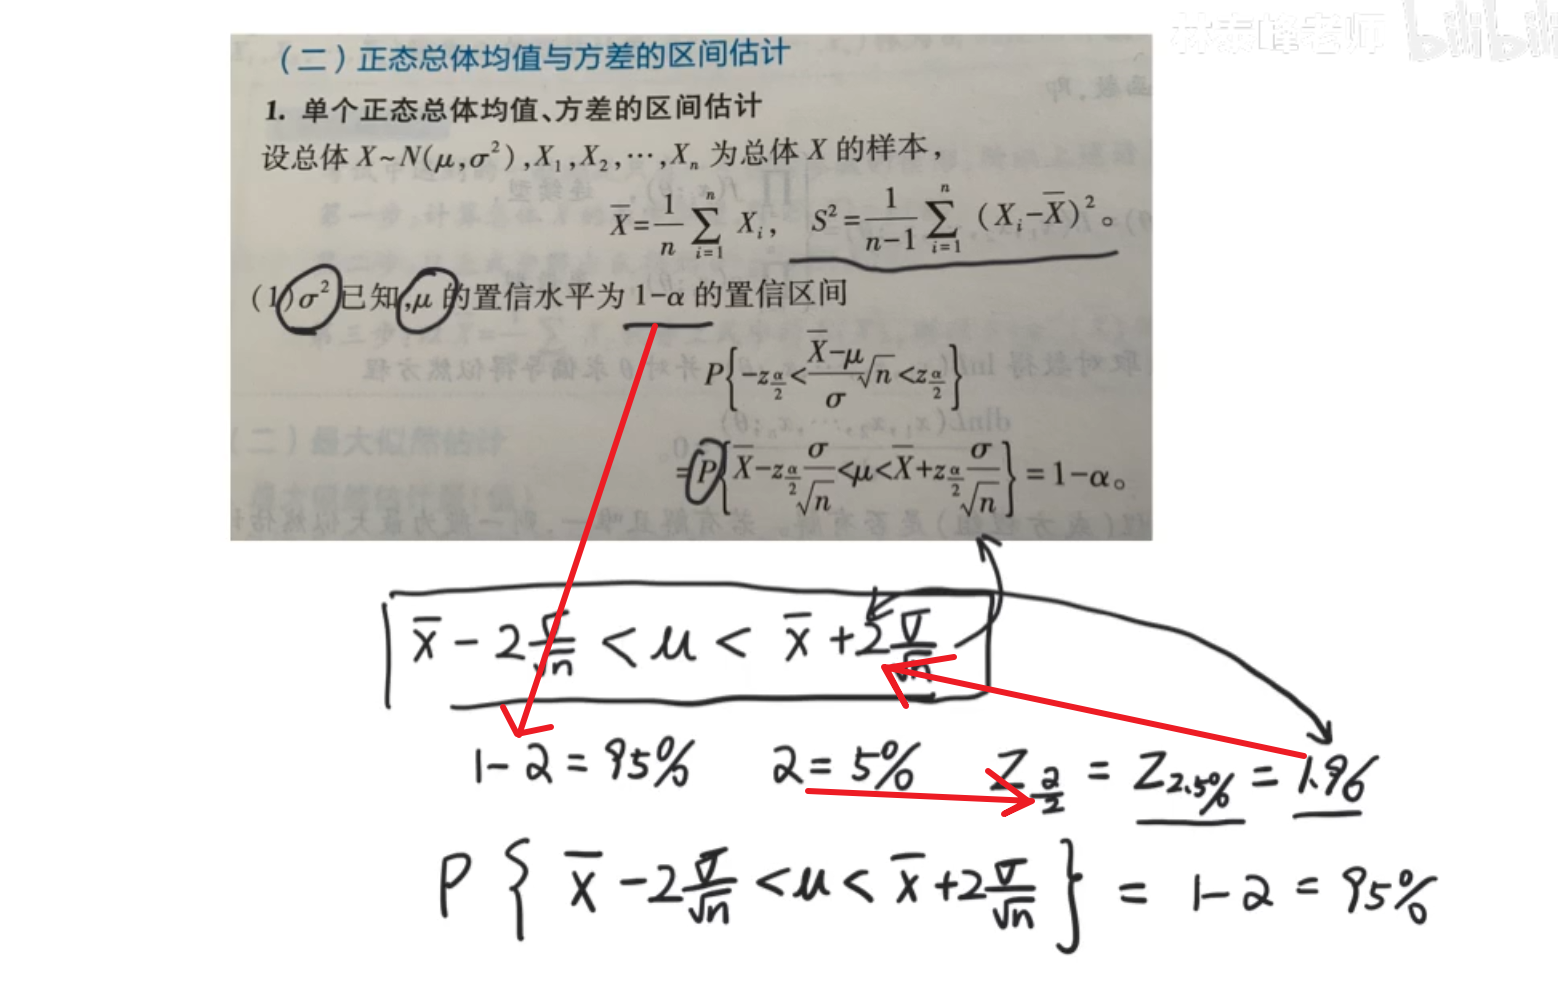 林泰峰老师 bilibili
(二)正态总体均值与方差的区间估计
1. 单个正态总体均值、方差的区间估计
设总体 X~N(μ,σ²),X₁,X₂,⋯,Xₙ 为总体 X 的样本,
X̄=1/n ∑ᵢ₌₁ⁿ Xᵢ, S²=1/(n−1) ∑ᵢ₌₁ⁿ (Xᵢ−X̄)²。
(1)σ² 已知,μ 的置信水平为 1−α 的置信区间
P{−z_{α/2}<(X̄−μ)/σ √n<z_{α/2}}
=P{X̄−z_{α/2} σ/√n<μ<X̄+z_{α/2} σ/√n}=1−α。
x̄ − 2 σ/√n < μ < x̄ + 2 σ/√n
1−2 = 95% 2 = 5% Z_{2/2} = Z_{2.5%} = 1.96
P { x̄ − 2 σ/√n < μ < x̄ + 2 σ/√n } = 1−2 = 95%